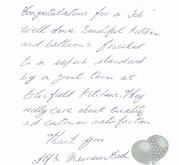 Congratulations for a job
well done. Beautiful Kitchen
and bathrooms finished
to a superb standard
by a great team at
Kitchens. They
really care about quality
and customer satisfaction
Thank you
Mr &